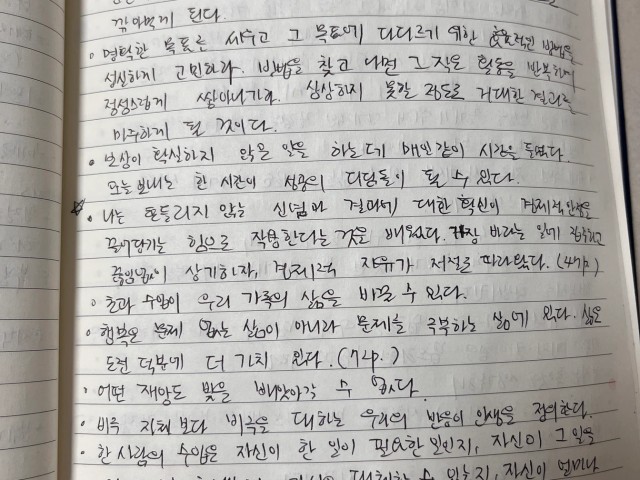 깎아먹게 된다.
• 명확한 목표를 세우고 그 목표에 다다르기 위한 효율적인 방법을
성실하게 고민하라. 방법을 찾고 나면 그 작은 활동을 반복하며
정성스럽게 쌓아나가라. 상상하지 못할 정도로 거대한 결과를
마주하게 될 것이다.
• 보상이 확실하지 않은 일을 하는데 매일같이 시간을 들였다.
오늘 보내는 한 시간이 성공의 디딤돌이 될 수 있다.
• 나는 흔들리지 않는 신념과 결과에 대한 확신이 경제적 인생을
끌어당기는 힘으로 작용한다는 것을 배웠다. 가장 바라는 일에 집중하고
끊임없이 상기하자, 경제적 자유가 저절로 따라왔다. (47p.)
• 초과 수입이 우리 가족의 삶을 바꿀 수 있다.
• 행복은 문제 없는 삶이 아니라 문제를 극복하는 삶에 있다. 삶은
도전 덕분에 더 가치 있다. (72p.)
• 어떤 재앙도 빛을 빼앗아갈 수 없다.
• 비극 자체보다 비극을 대하는 우리의 반응이 인생을 정의한다.
• 한 사람의 수입은 자신이 한 일이 필요한 일인지, 자신이 그 일을
대체할 수 있는지, 자신이 얼마나